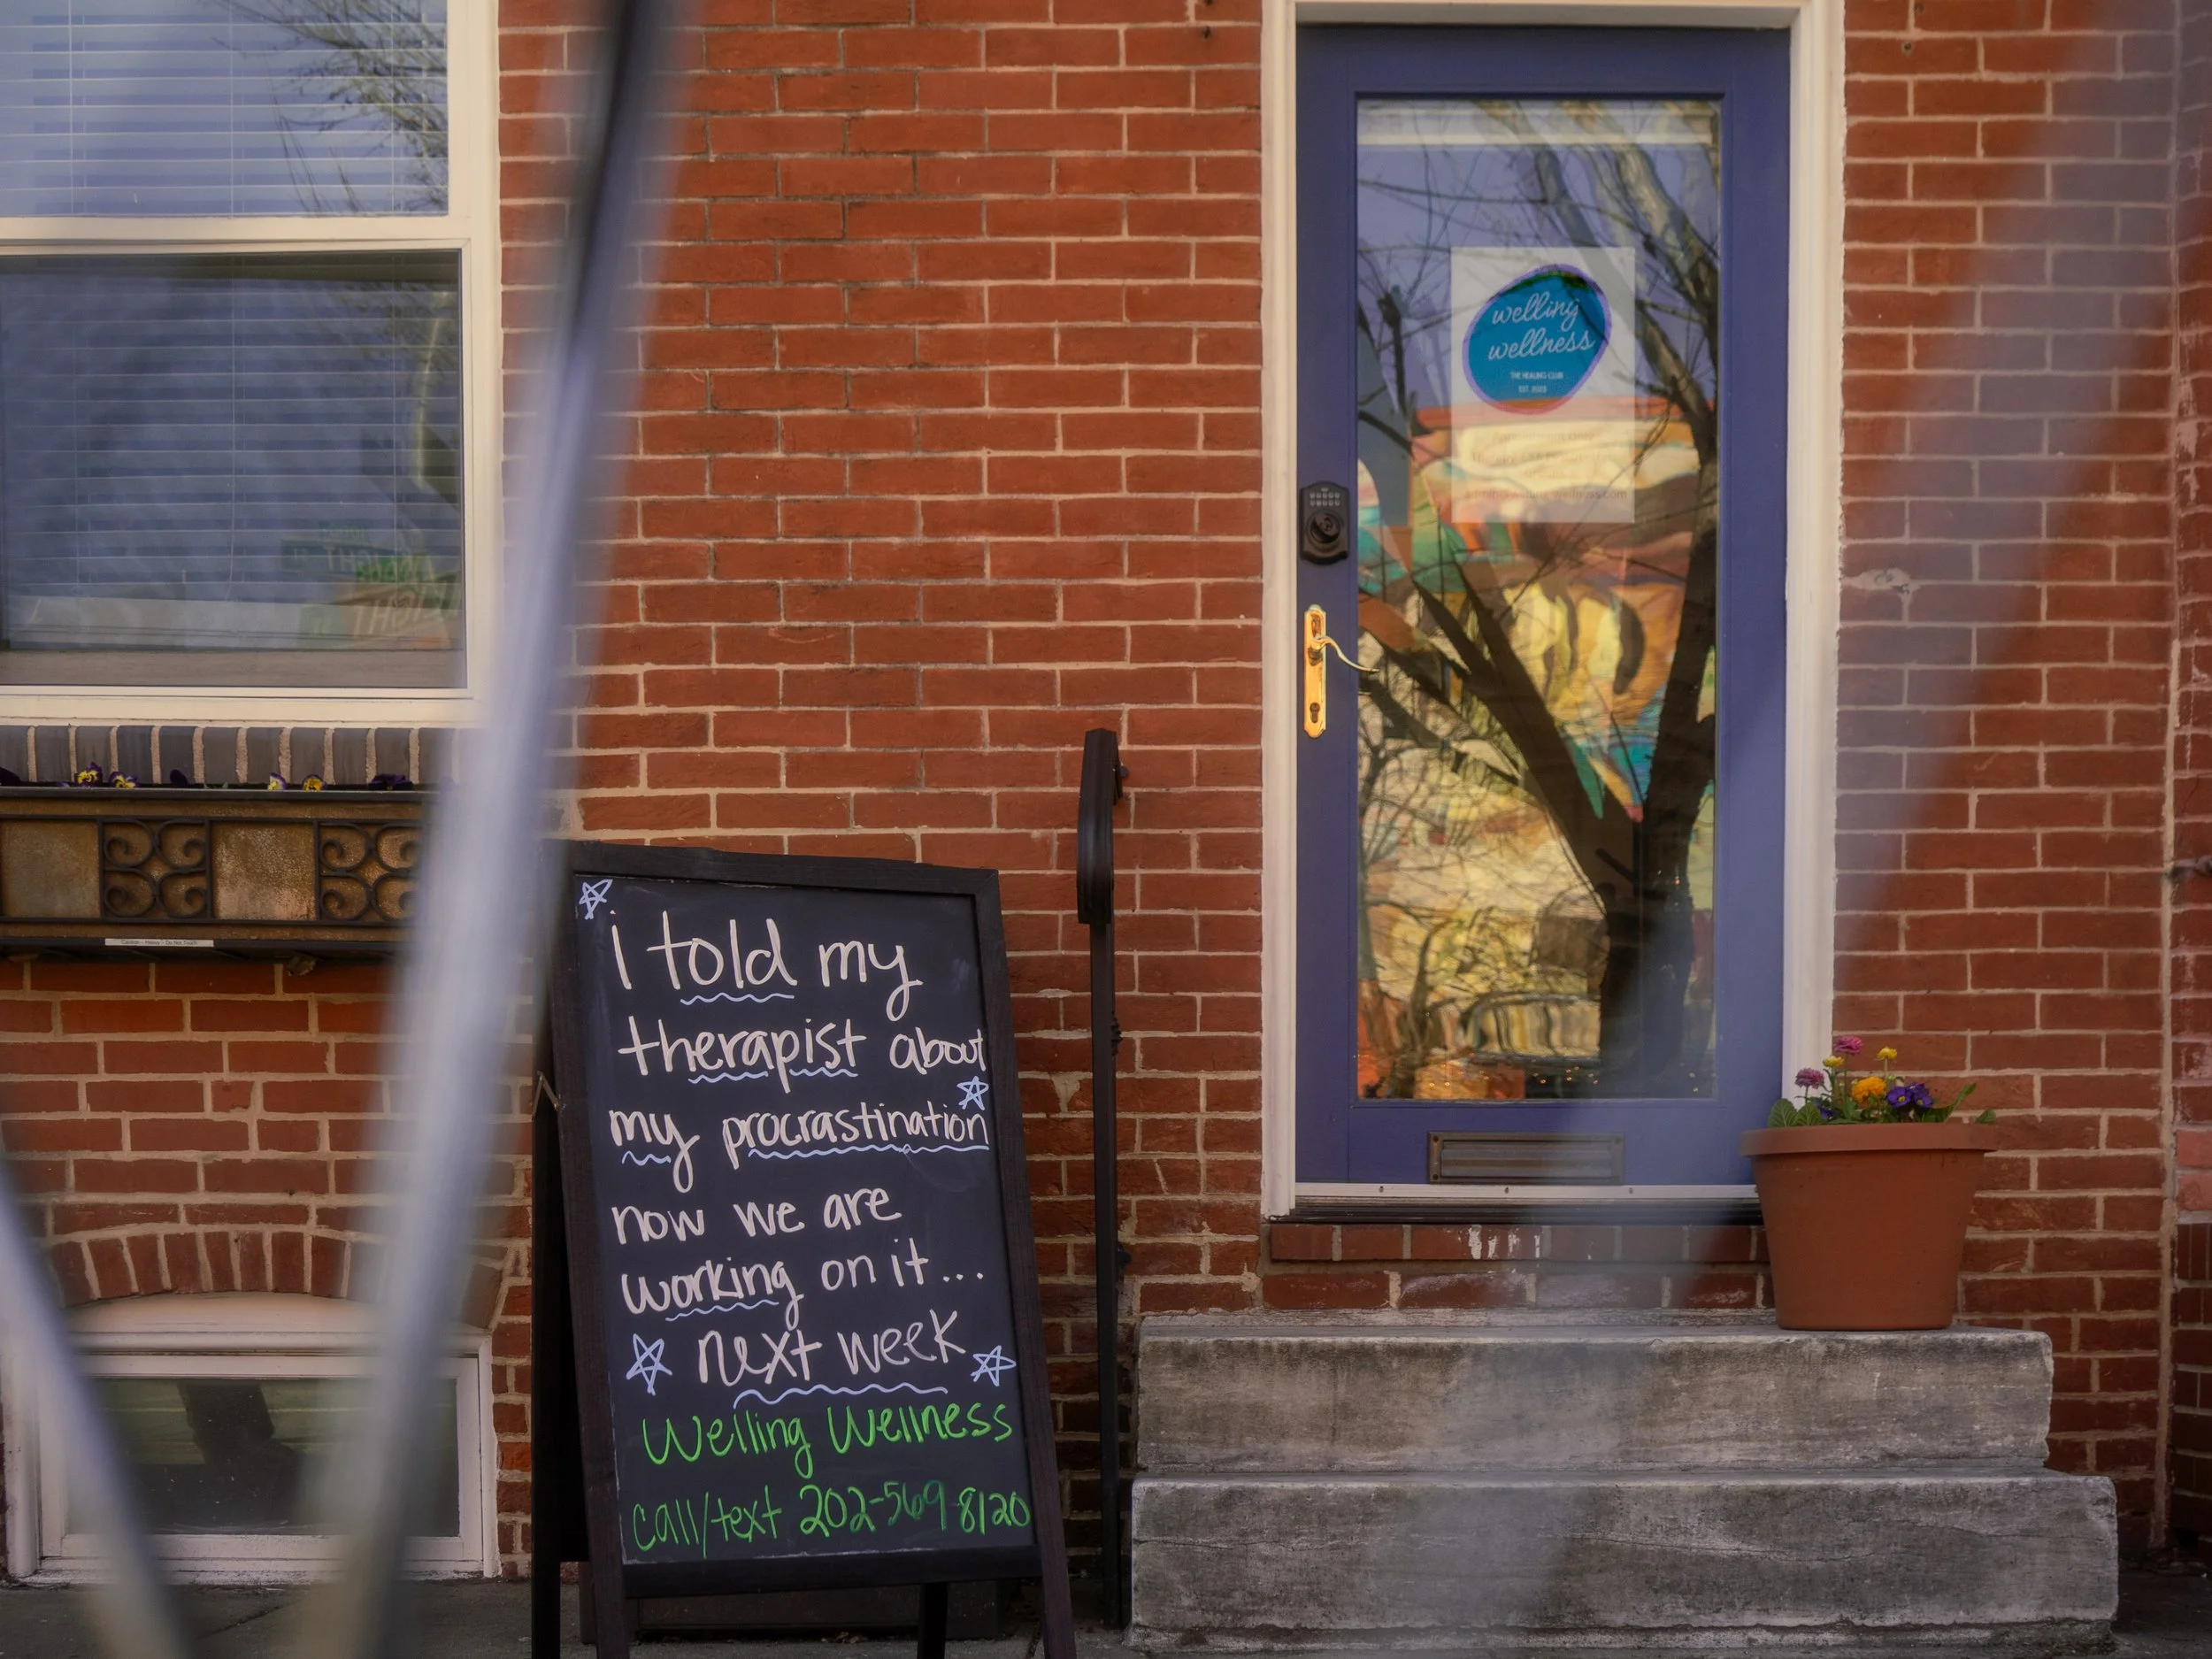 welling
wellness
THE HEALING CLUB
i told my
therapist about
my procrastination
now we are
working on it...
next week
Welling Wellness
call/text 202-569 8120